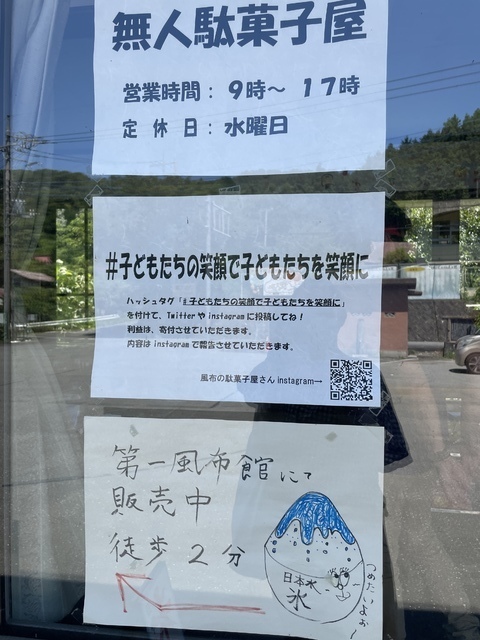 無人駄菓子屋
営業時間：９時～１７時
定休日：水曜日
#子どもたちの笑顔で子どもたちを笑顔に
ハッシュタグ「#子どもたちの笑顔で子どもたちを笑顔に」
を付けて、Twitterやinstagramに投稿してね！
利益は、寄付させていただきます。
内容はinstagramで報告させていただきます。
風布の駄菓子屋さんinstagram→
第一風布館にて
販売中
徒歩2分
日本水
氷
つめたいよぉ～